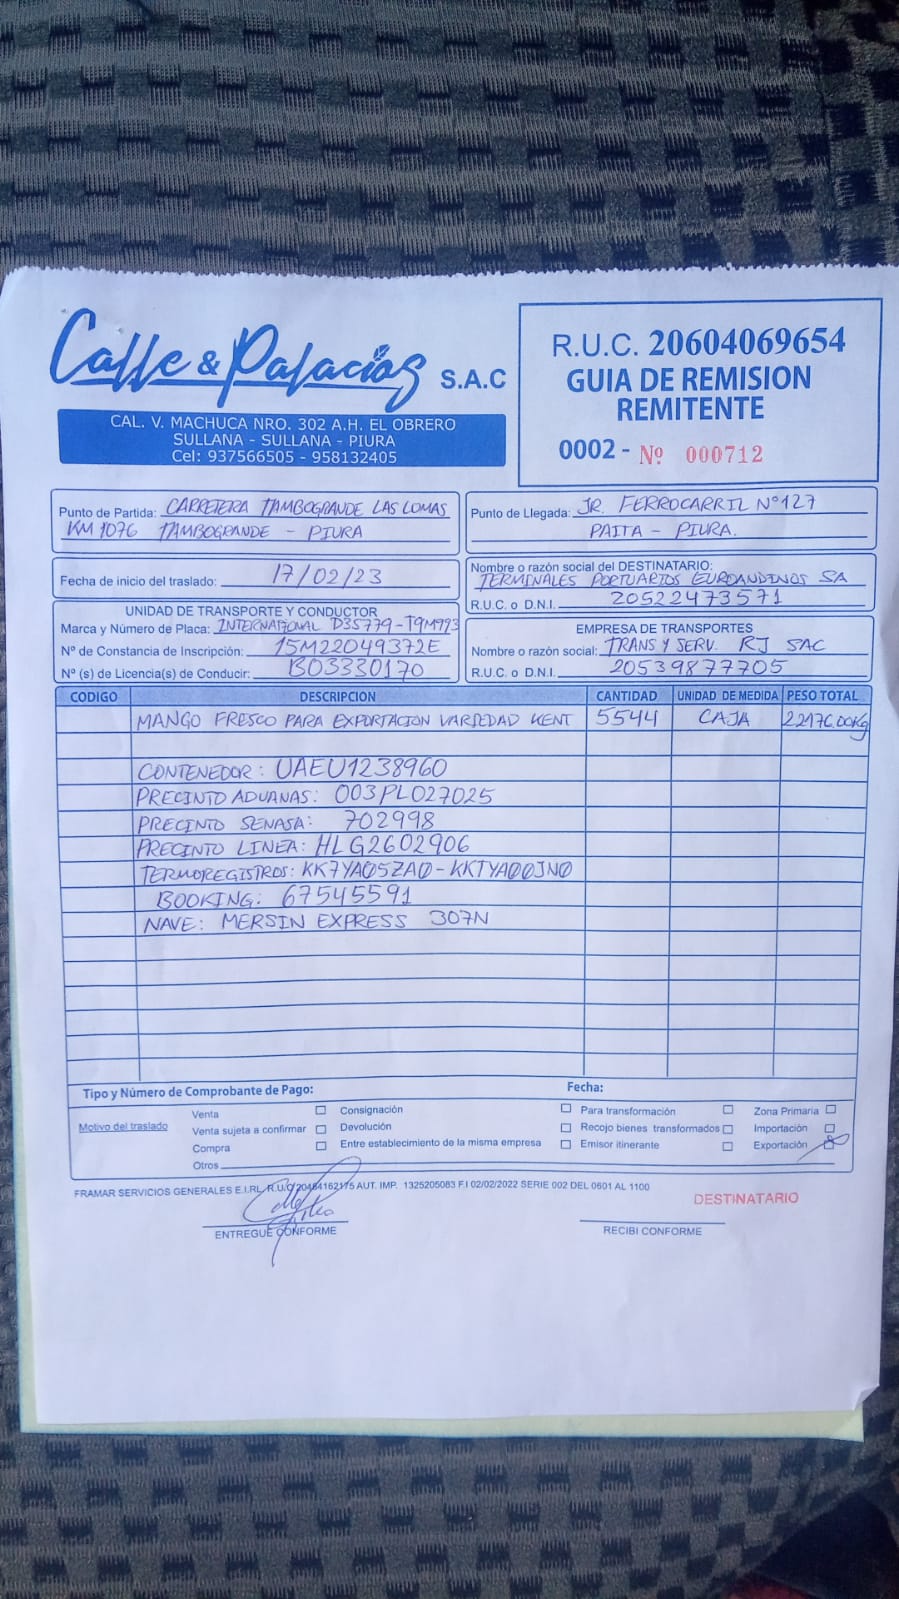 Calle & Palacios S.A.C
CAL. V. MACHUCA NRO. 302 A.H. EL OBRERO
SULLANA - SULLANA - PIURA
Cel: 937566505 - 958132405
R.U.C. 20604069654
GUIA DE REMISION
REMITENTE
0002 - Nº 000712
Punto de Partida: CARRETERA TAMBOGRANDE LAS LOMAS
KM 1076 TAMBOGRANDE - PIURA
Punto de Llegada: JR. FERROCARRIL N°127
PAITA - PIURA.
Fecha de inicio del traslado: 17/02/23
Nombre o razón social del DESTINATARIO:
TERMINALES PORTUARIOS EUROANDINOS SA
R.U.C. o D.N.I. 20522473571
UNIDAD DE TRANSPORTE Y CONDUCTOR
Marca y Número de Placa: INTERNATIONAL D3S779-T9M993
Nº de Constancia de Inscripción: 15M22049372E
Nº (s) de Licencia(s) de Conducir: B03330170
EMPRESA DE TRANSPORTES
Nombre o razón social: TRANS Y SERV. RJ SAC
R.U.C. o D.N.I. 20539877705
CODIGO DESCRIPCION CANTIDAD UNIDAD DE MEDIDA PESO TOTAL
MANGO FRESCO PARA EXPORTACION VARIEDAD KENT 5544 CAJA 22176.00Kg
CONTENEDOR: UAEU1238960
PRECINTO ADUANAS: 003PL027025
PRECINTO SENASA: 702998
PRECINTO LINEA: HLG2602906
TERMOREGISTROS: KK7YA05ZA0 - KKTYA00JN0
BOOKING: 67545591
NAVE: MERSIN EXPRESS 307N
Tipo y Número de Comprobante de Pago: Fecha:
Motivo del traslado
Venta
Venta sujeta a confirmar
Compra
Otros
Consignación
Devolución
Entre establecimiento de la misma empresa
Para transformación
Recojo bienes transformados
Emisor itinerante
Zona Primaria
Importación
Exportación
FRAMAR SERVICIOS GENERALES E.I.RL. R.U.C 20484162175 AUT. IMP. 1325205083 F.I 02/02/2022 SERIE 002 DEL 0601 AL 1100
DESTINATARIO
ENTREGUE CONFORME
RECIBI CONFORME